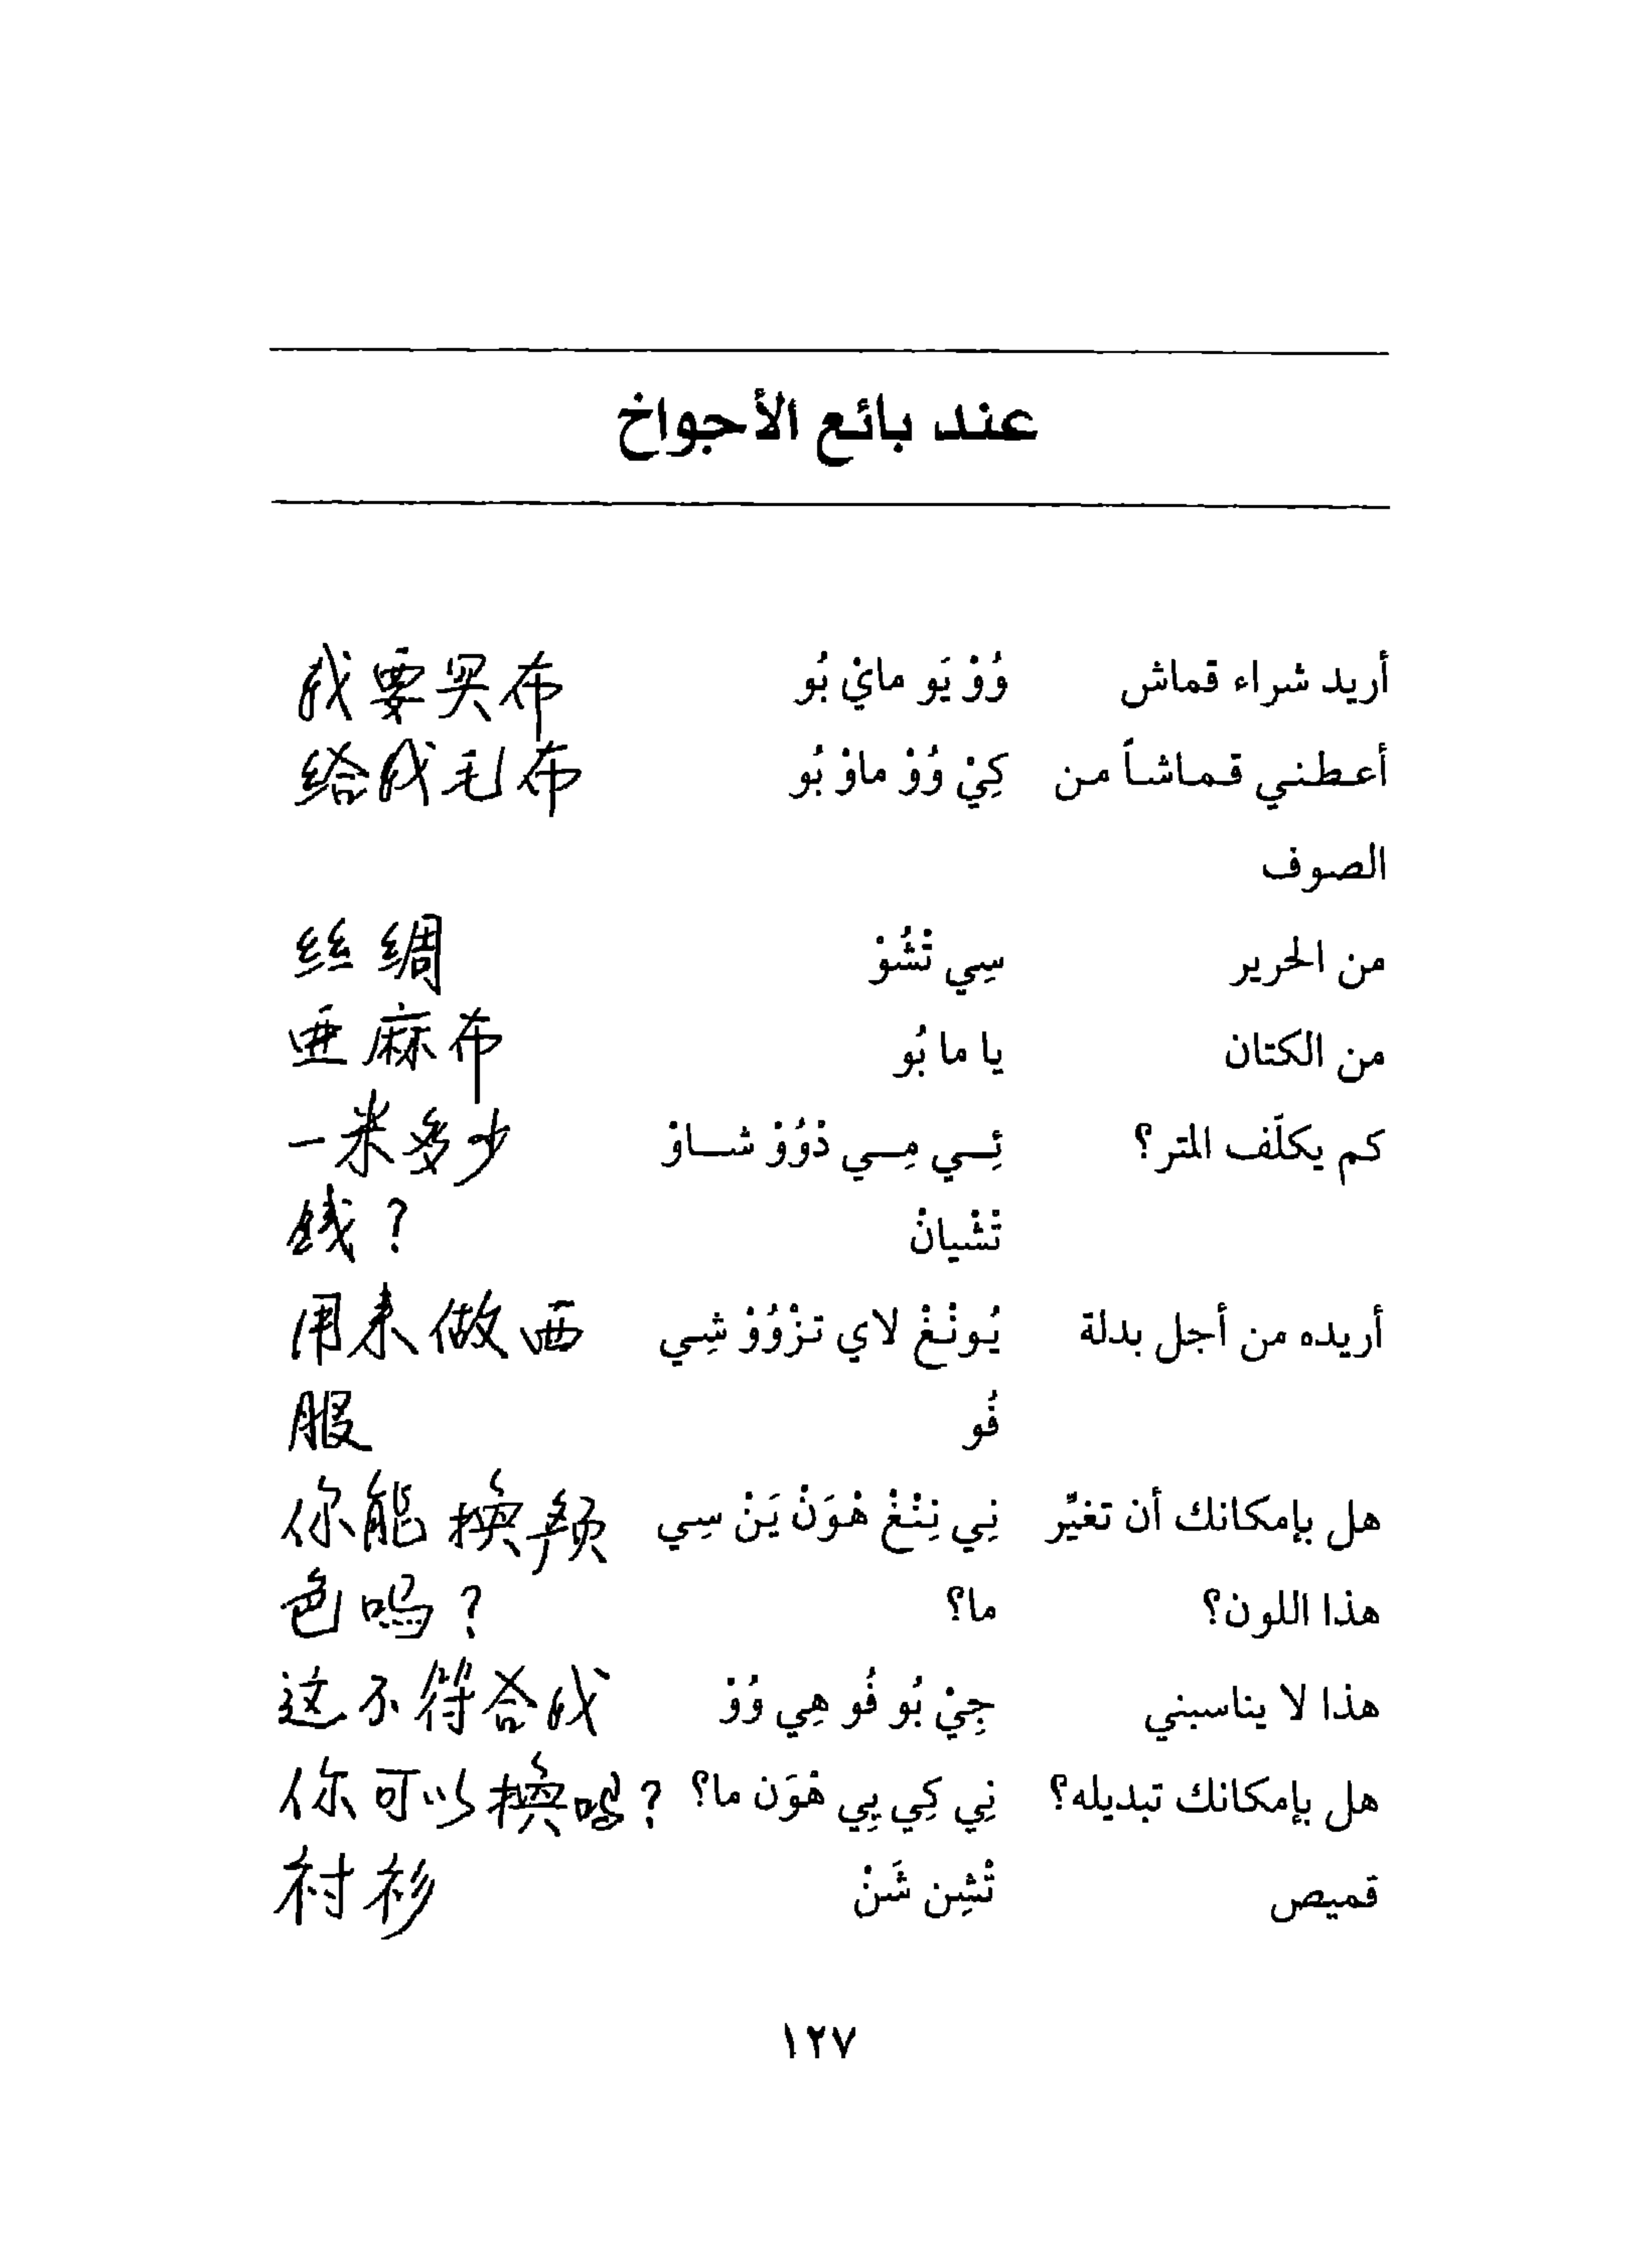 عند بائع الأجواخ
أريد شراء قماش وُوْ يَو مايْ بُو 我要买布
أعطني قماشاً من كِيْ وُوْ ماوْ بُو 给我毛布
الصوف
من الحرير سِي تْشُوْ 丝绸
من الكتان يا ما بُو 亚麻布
كم يكلّف المتر؟ ئِي مِي دْوُوْ شاوْ 一米多少
تْشْيانْ 钱?
أريده من أجل بدلة يُونْغْ لاي تزْوُوْ شِي 用来做西
فُو 服
هل بإمكانك أن تغيِّر نِي نِنْغْ هْوَنْ يَنْ سِي 你能换颜
هذا اللون؟ ما؟ 色吗?
هذا لا يناسبني جِيْ بُو فُو هِي وُوْ 这不符合我
هل بإمكانك تبديله؟ نِي كِي يِي هْوَن ما؟ 你可以换吗?
قميص تْشِن شَنْ 衬衫
١٢٧